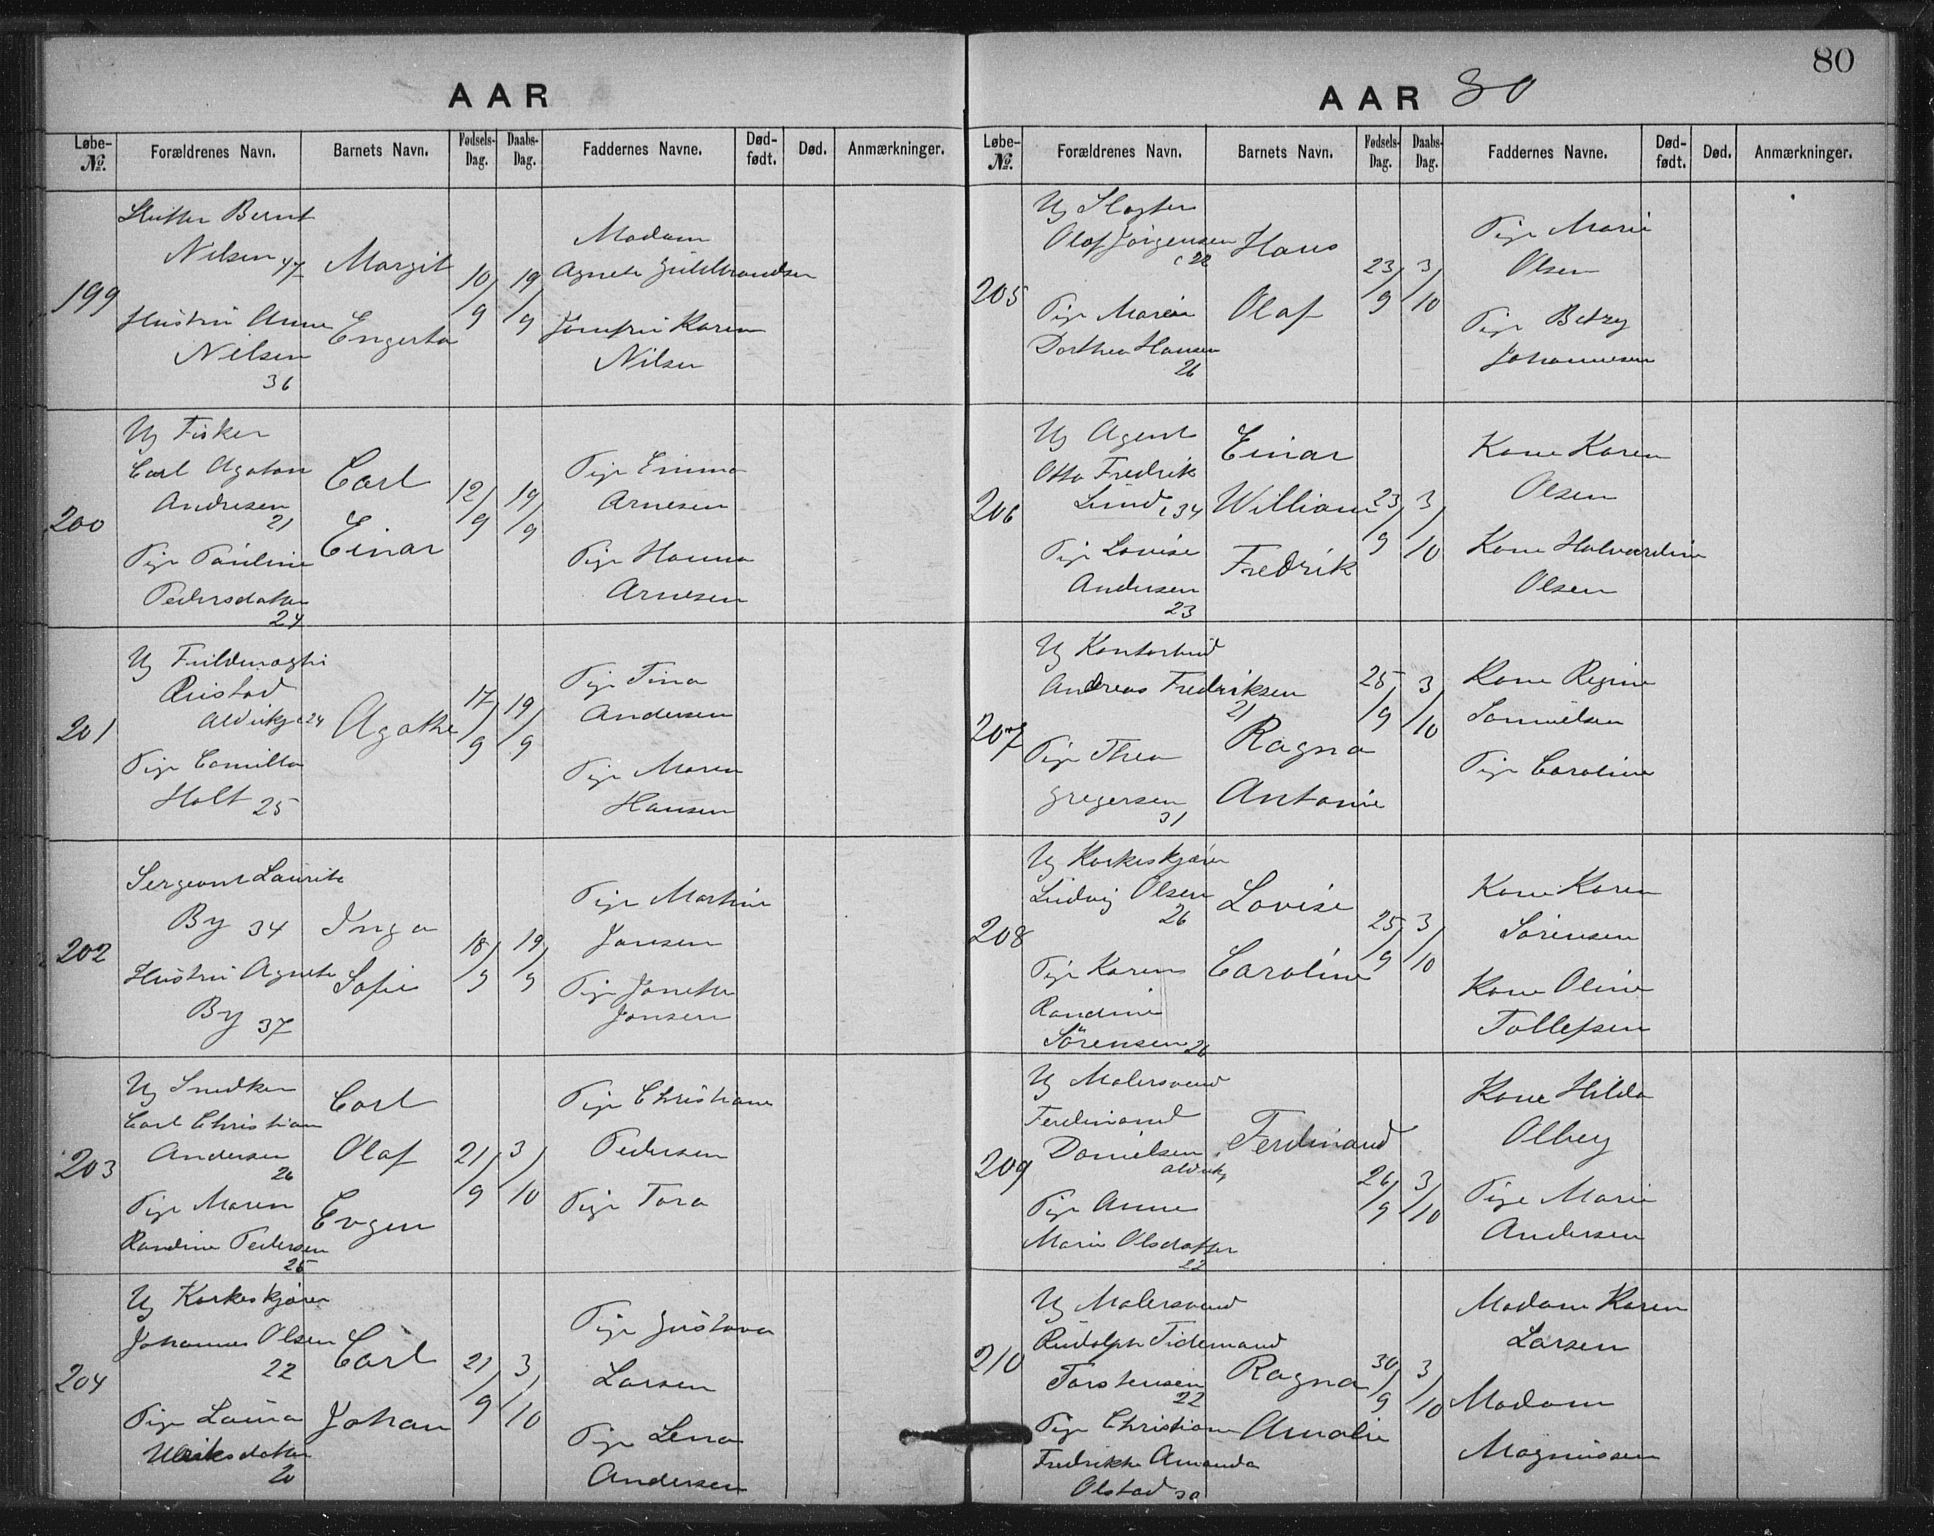 AAR
Løbe-No.
Forældrenes Navn.
Barnets Navn.
Fødsels-Dag.
Daabs-Dag.
Faddernes Navne.
Død-født.
Død.
Anmærkninger.
199
Bernt
Nilsen 47
Hustru Anne
Nilsen
36
Margit
10/9
19/9
Madam
Agnete Guldbrandsen
Jomfru Karen
Nilsen
200
Ug Fisker
Carl Agaton
Andresen
21
Pige Pauline
Pedersdatter
24
Carl
Einar
12/9
19/9
Pige Emma
Arnesen
Pige Hanna
Arnesen
201
Ug
Pige Camilla
Holt 25
Agathe
17/9
19/9
Pige Tina
Andersen
Pige Maren
Hansen
202
Sergeant Lauritz
By 34
Hustru Agnete
By 37
Inga
Sofie
18/9
19/9
Pige Martine
Jansen
Pige Janette
Jansen
203
Ug Snedker
Carl Christian
Andersen
26
Pige Maren
Randine Pedersen
25
Carl
Olaf
Evgen
21/9
3/10
Pige Christiane
Pedersen
Pige Tora
204
Ug Karkeskjører
Johannes Olsen
22
Pige Laura
Ulriksdatter
20
Carl
Johan
21/9
3/10
Pige Gustava
Larsen
Pige Lena
Andersen
80
AAR 80
Løbe-No.
Forældrenes Navn.
Barnets Navn.
Fødsels-Dag.
Daabs-Dag.
Faddernes Navne.
Død-født.
Død.
Anmærkninger.
205
Ug Slagter
Olaf Jørgensen
c 22
Pige Maren
Dorthea Hansen
26
Hans
Olaf
23/9
3/10
Pige Marie
Olsen
Pige Betzy
Johannesen
206
Ug Agent
Otto Fredrik
Lund c 34
Pige Lovise
Andersen
23
Einar
William
Fredrik
23/9
3/10
Kone Karen
Olsen
Kone Halvardine
Olsen
207
Ug Kontorbud
Andreas Fredriksen
21
Pige Thea
Gregersen
31
Ragna
Antonie
25/9
3/10
Kone Regine
Samuelsen
Pige Caroline
208
Ug Karkeskjører
Ludvig Olsen
26
Pige Karen
Randine
Sørensen 26
Lovise
Caroline
25/9
3/10
Kone Karen
Sørensen
Kone Oline
Tollefsen
209
Ug Malersvend
Ferdinand
Danielsen
Pige Anne
Marie Olsdatter
22
Ferdinand
26/9
3/10
Kone Hilda
Olbey
Pige Marie
Andersen
210
Ug Malersvend
Rudolph Tidemand
Torstensen
22
Pige Christiane
Fredrikke Amanda
Olstad 30
Ragna
Amalie
30/9
3/10
Madam Karen
Larsen
Madam
Magnussen